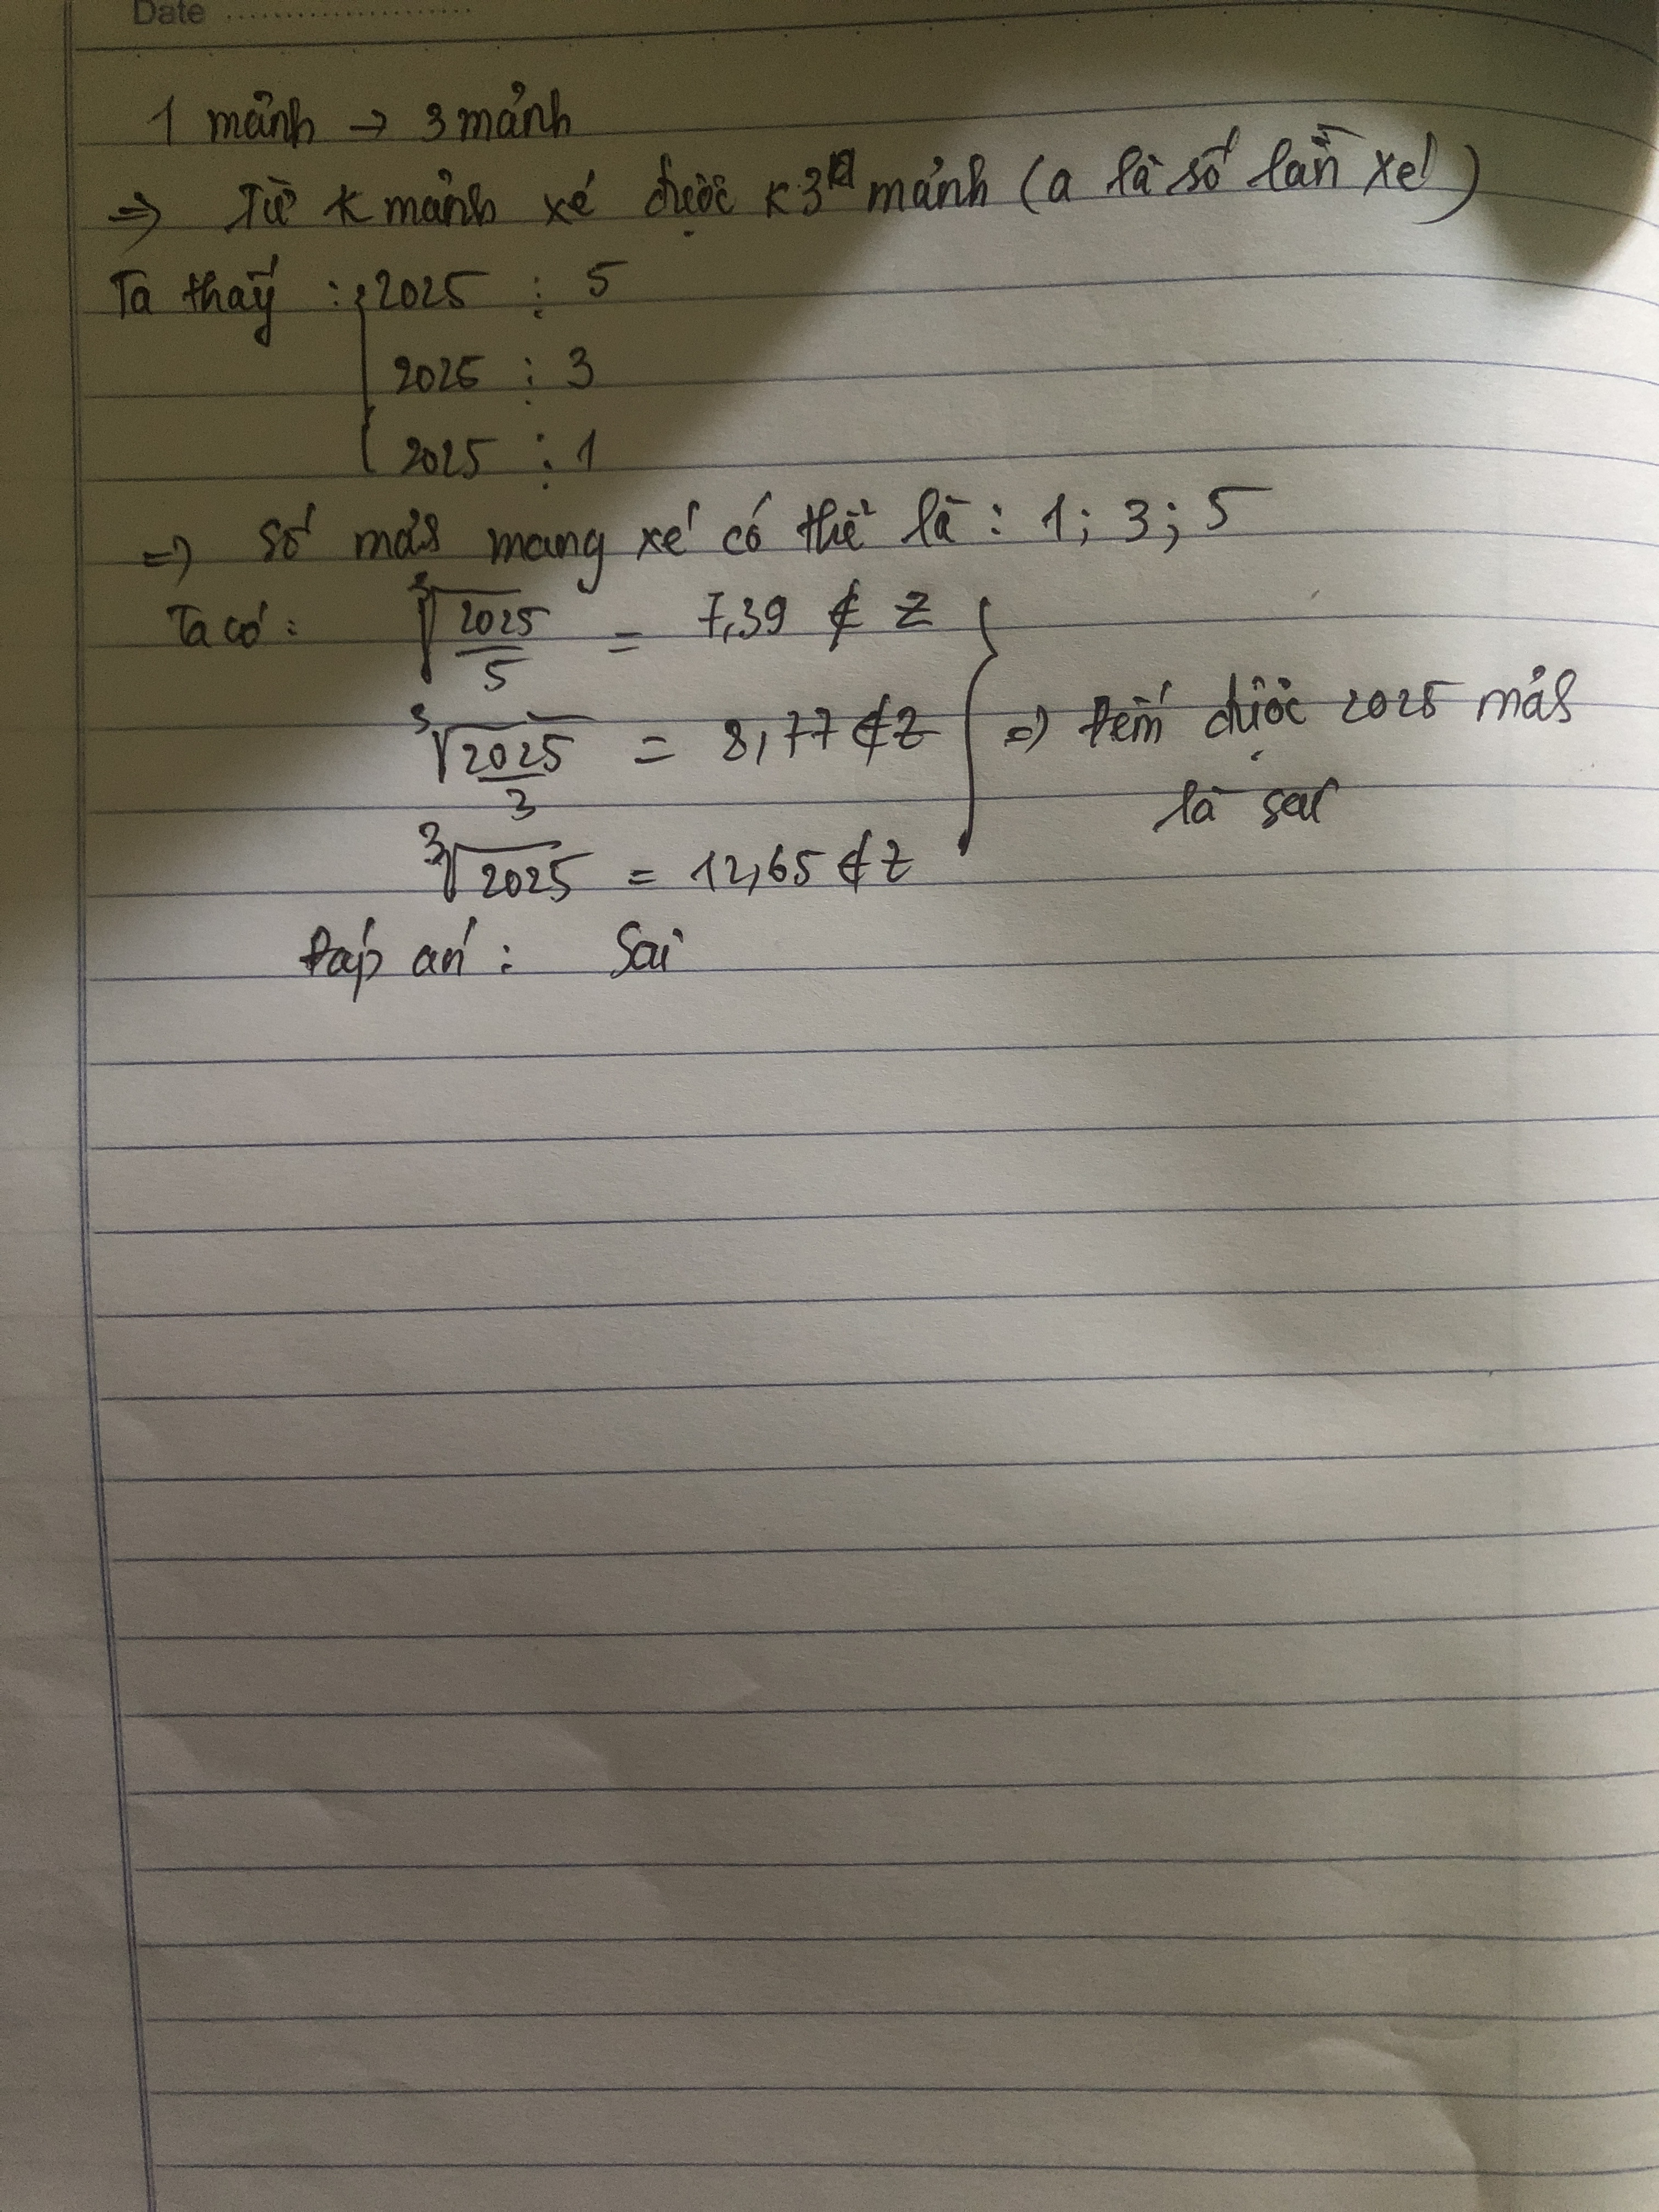 Date ........................
1 mảnh → 3 mảnh
=> Từ k mảnh xé được k3ᵃ mảnh (a là số lần xé)
Ta thấy : { 2025 ⋮ 5
2025 ⋮ 3
2025 ⋮ 1
=> số mảnh mang xé có thể là : 1; 3; 5
Ta có : ∛(2025/5) = 7,39 ∉ Z
∛(2025/3) = 8,77 ∉ Z } => Đếm được 2025 mảnh
là sai
∛2025 = 12,65 ∉ Z
Đáp án : Sai